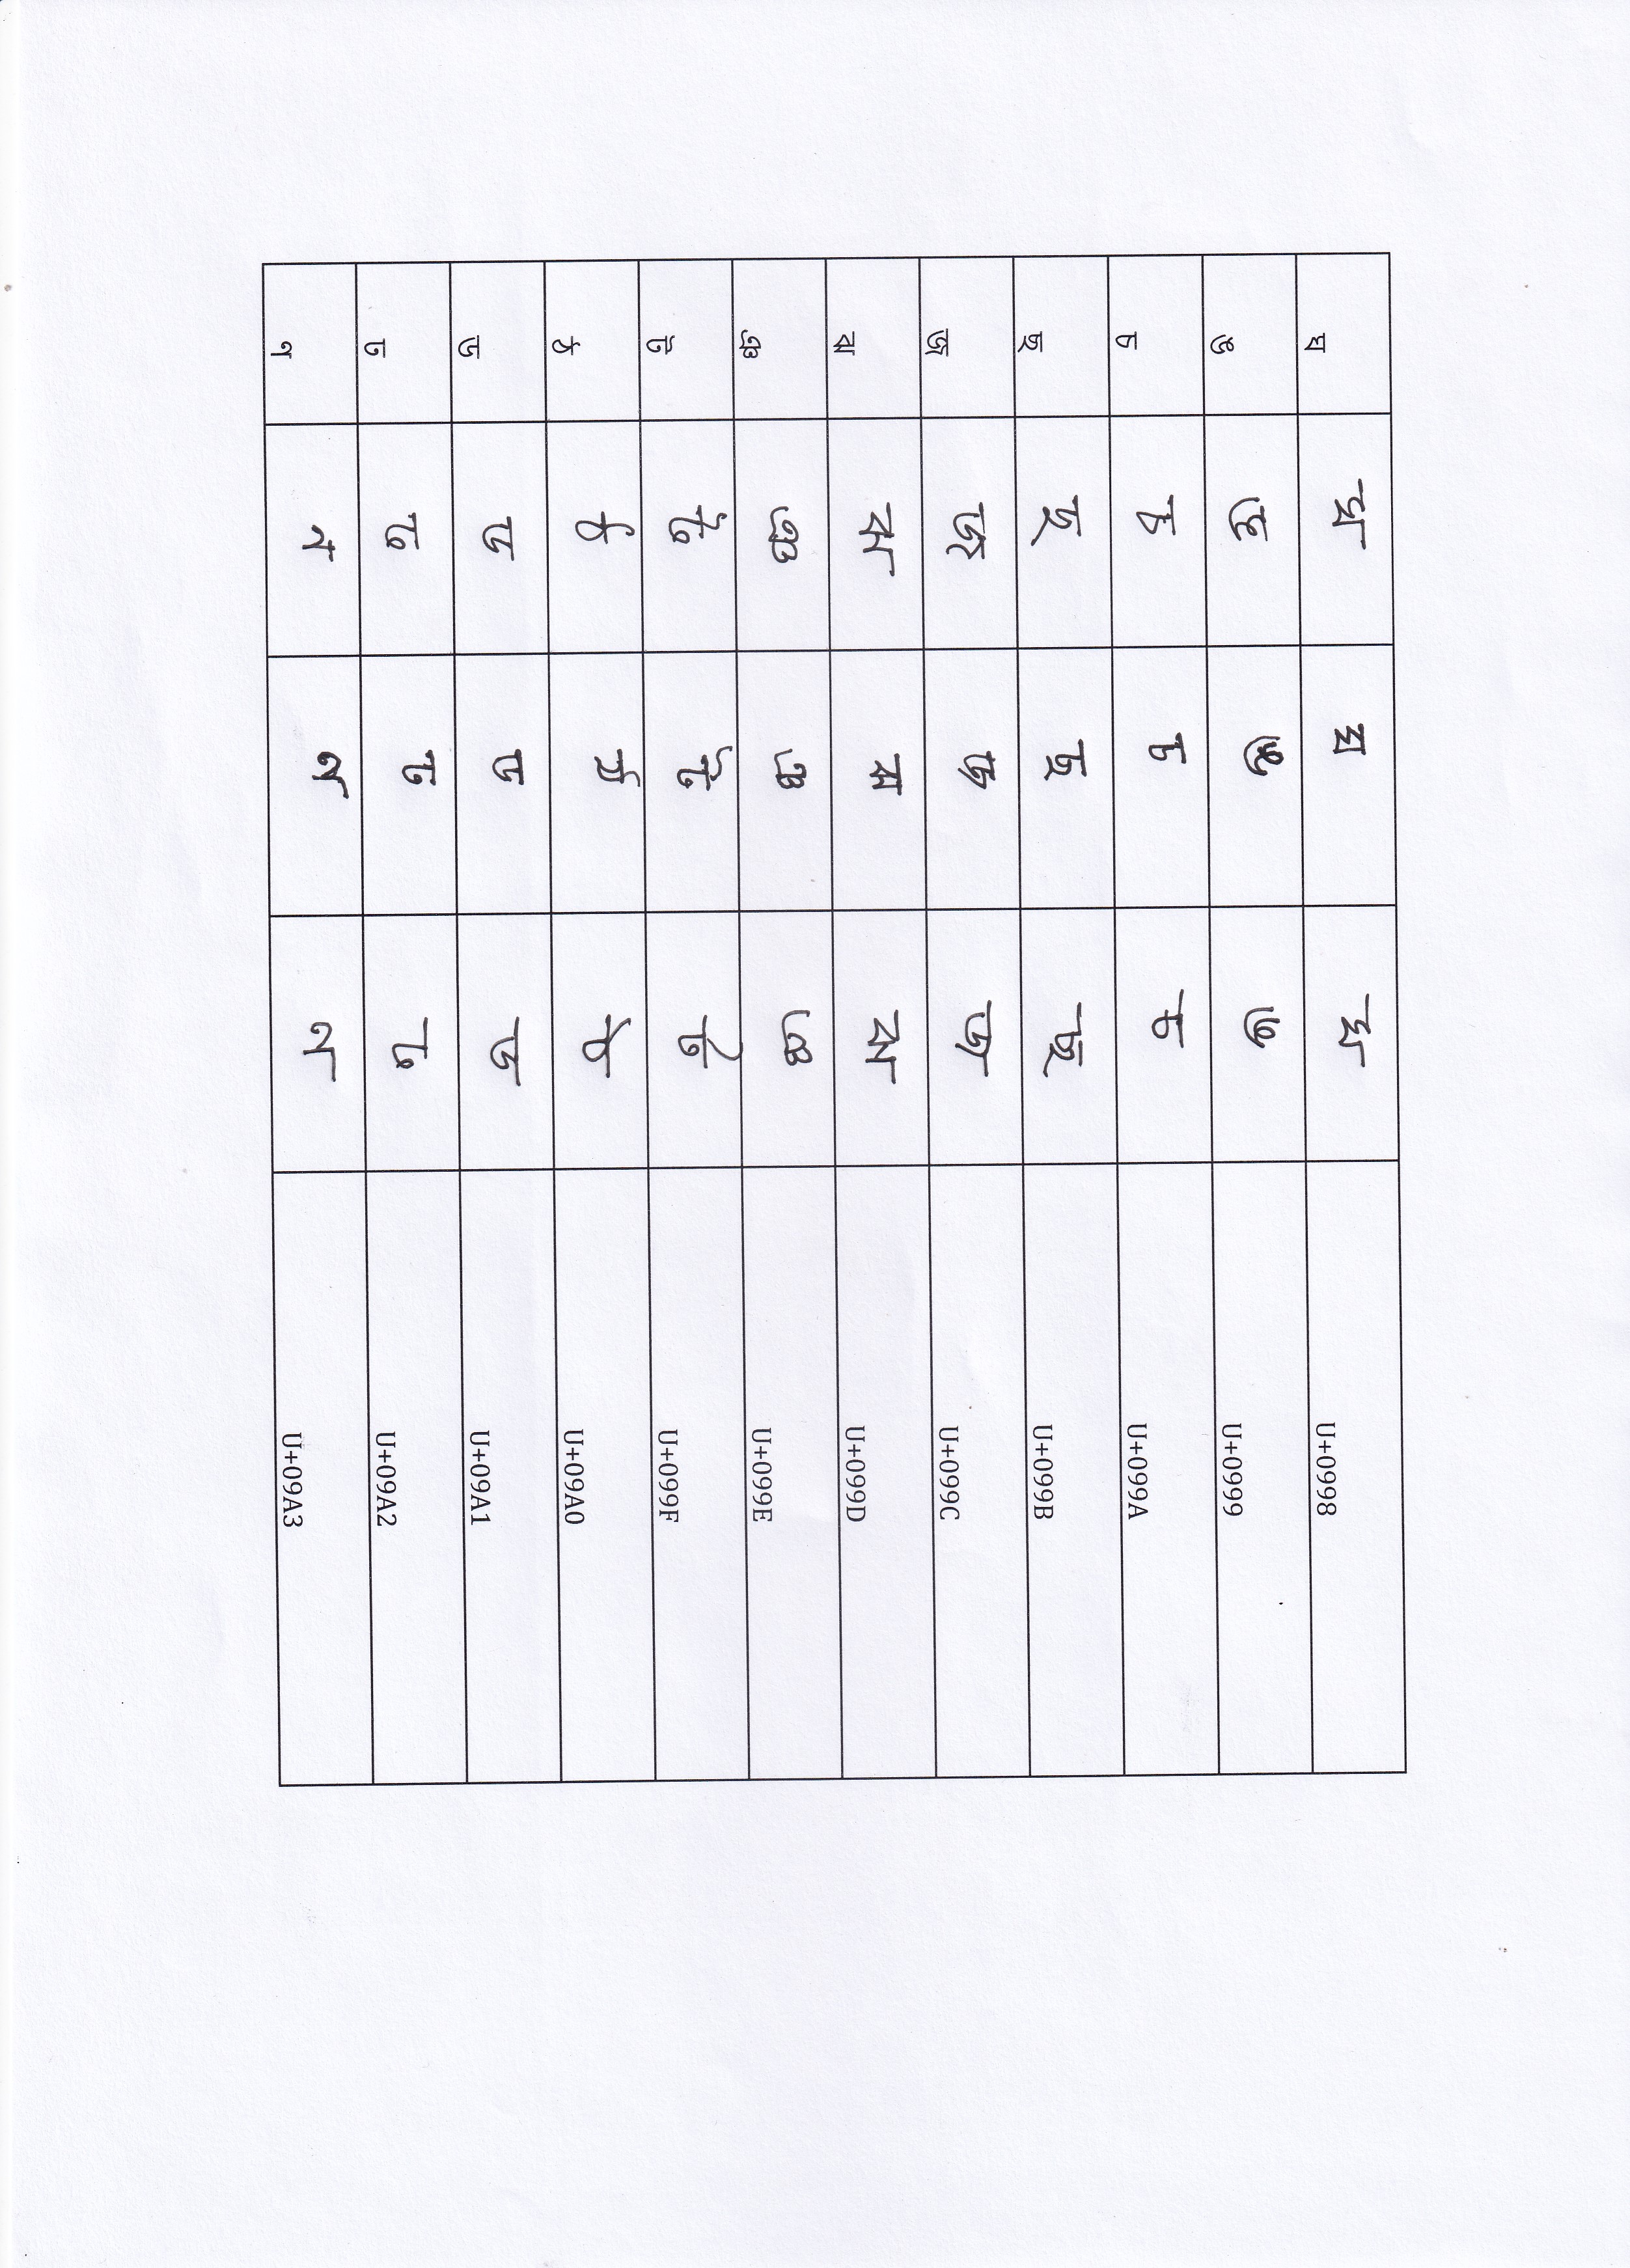 ঘ ঘ ঘ ঘ U+0998
ঙ ঙ ঙ ঙ U+0999
চ চ চ চ U+099A
ছ ছ ছ ছ U+099B
জ জ জ জ U+099C
ঝ ঝ ঝ ঝ U+099D
ঞ ঞ ঞ ঞ U+099E
ট ট ট ট U+099F
ঠ ঠ ঠ ঠ U+09A0
ড ড ড ড U+09A1
ঢ ঢ ঢ ঢ U+09A2
ণ ণ ণ ণ U+09A3